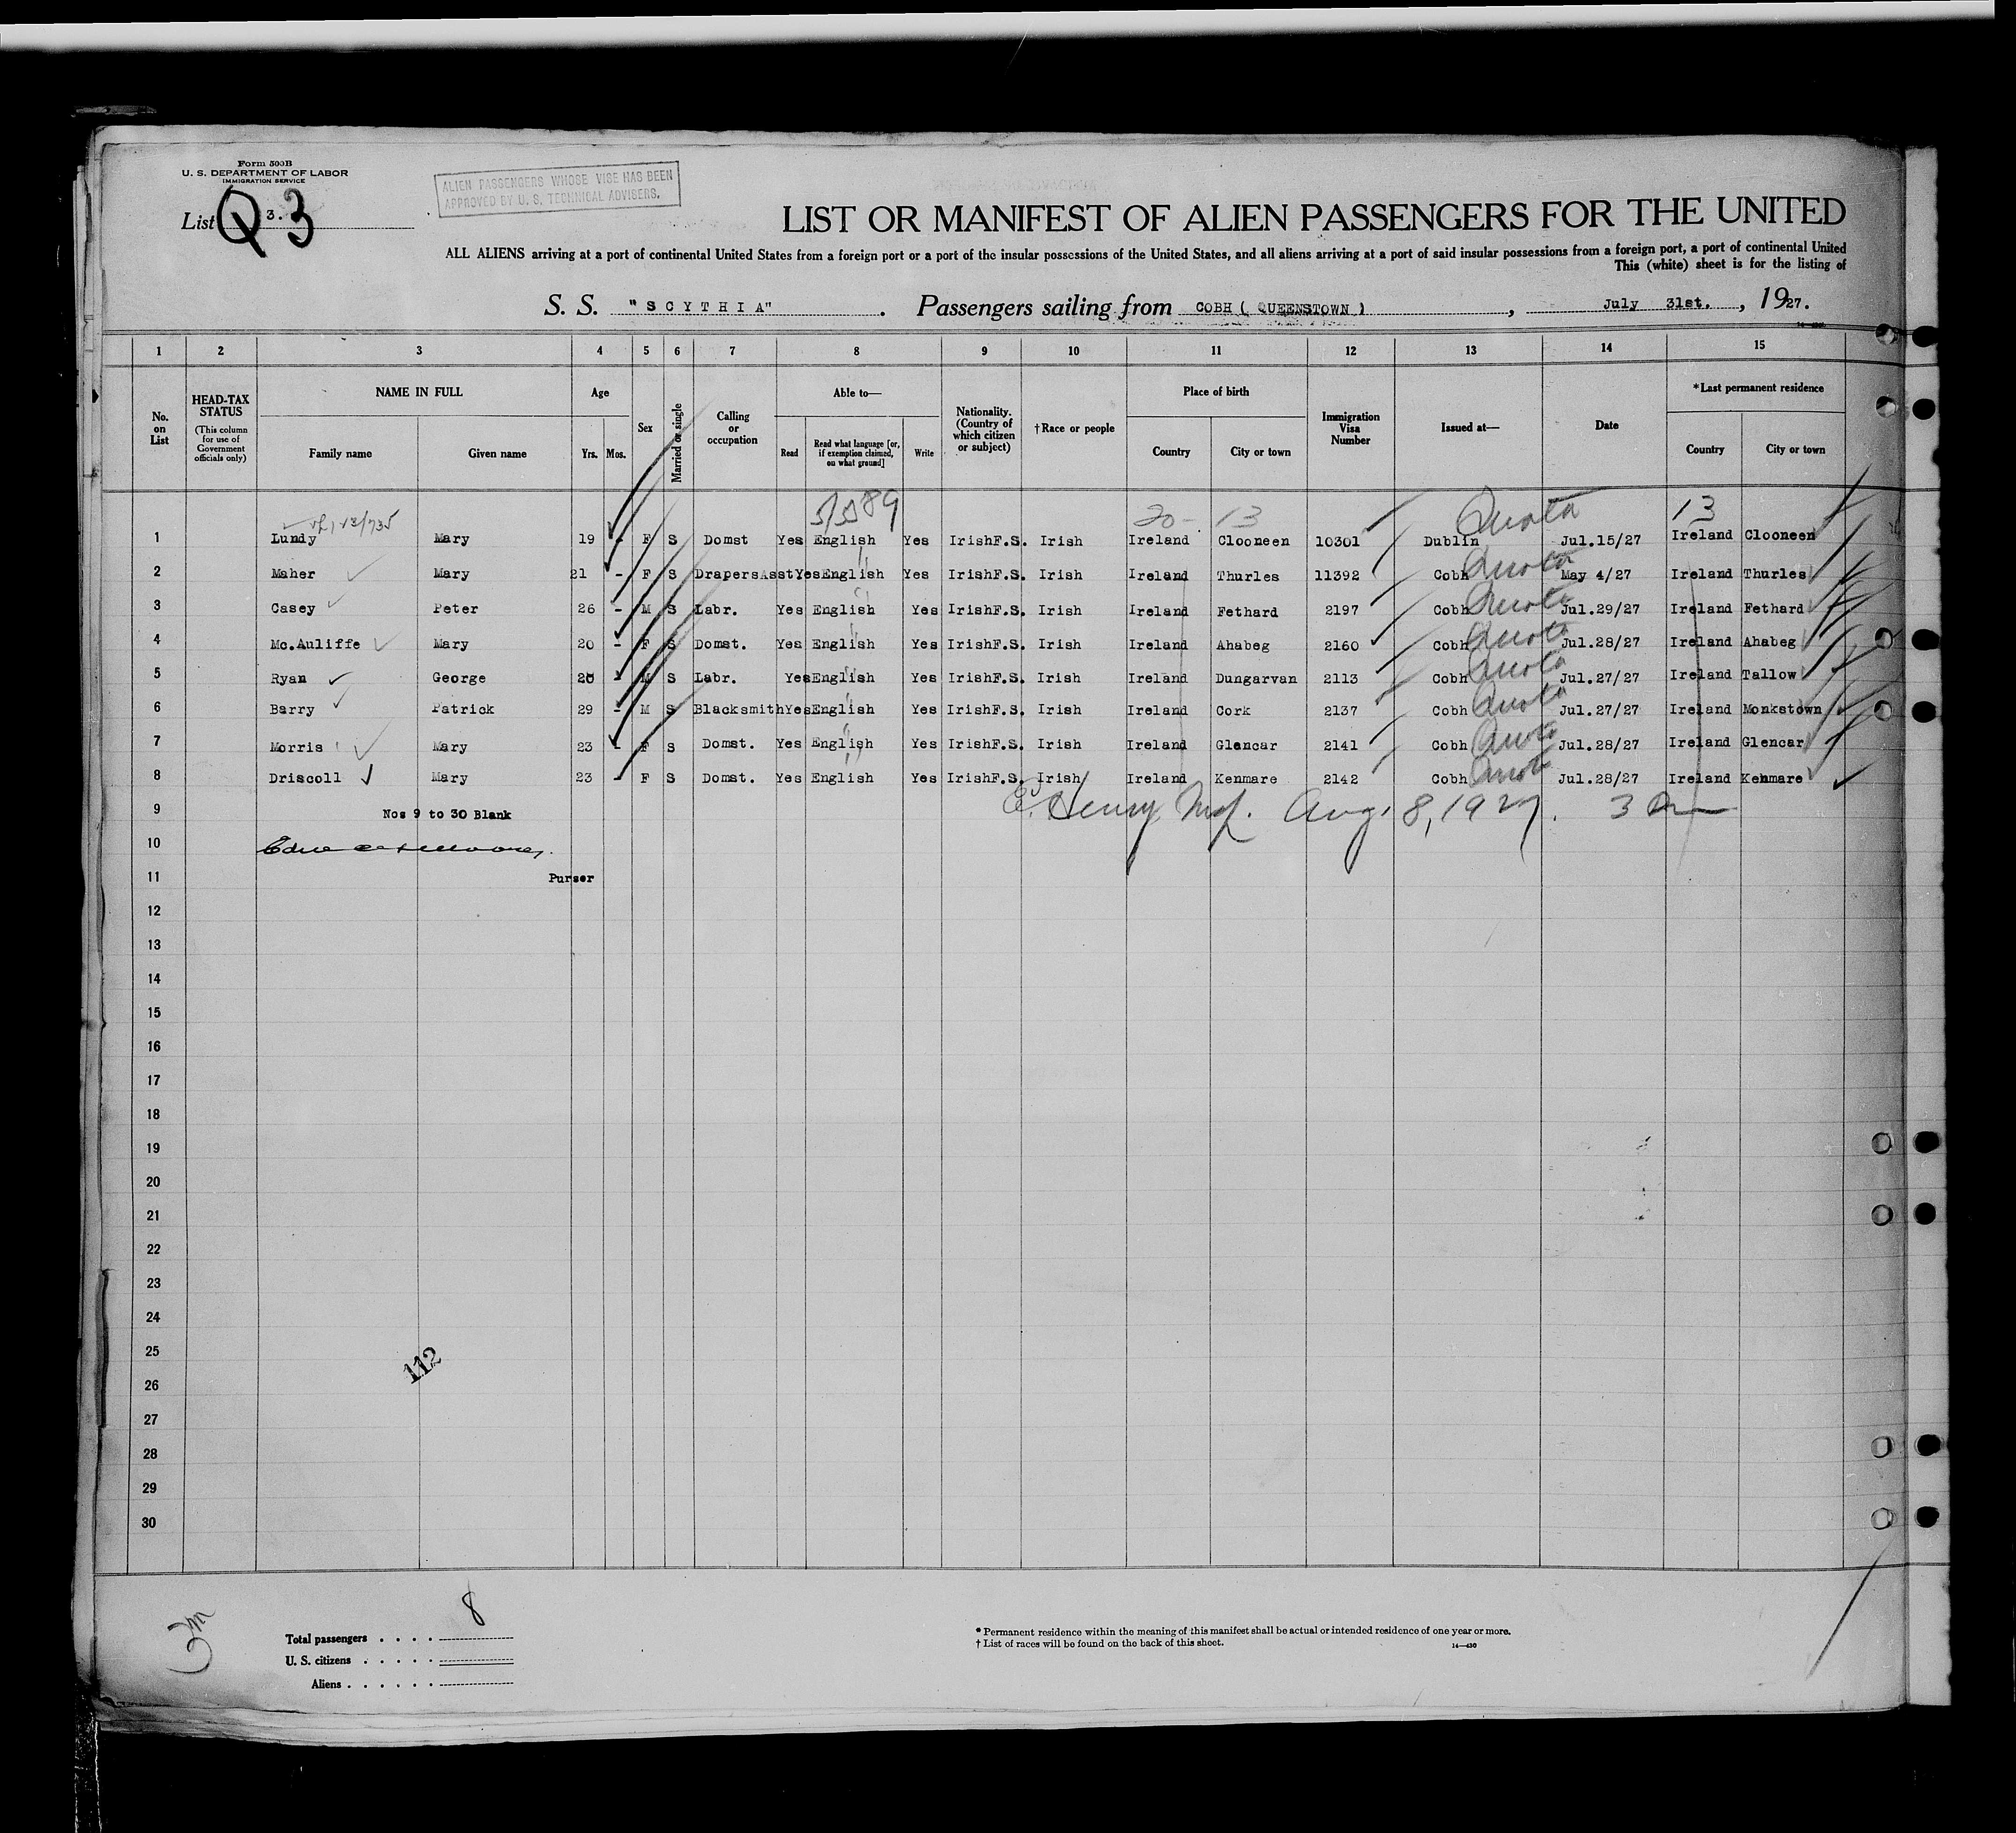 Form 500B
U. S. DEPARTMENT OF LABOR
IMMIGRATION SERVICE
ALIEN PASSENGERS WHOSE VISE HAS BEEN
APPROVED BY U. S. TECHNICAL ADVISERS.
List 3. Q 3
LIST OR MANIFEST OF ALIEN PASSENGERS FOR THE UNITED
ALL ALIENS arriving at a port of continental United States from a foreign port or a port of the insular possessions of the United States, and all aliens arriving at a port of said insular possessions from a foreign port, a port of continental United
This (white) sheet is for the listing of
S. S. "SCYTHIA" . Passengers sailing from COBH ( QUEENSTOWN ) , July 31st. , 1927.
1 2 3 4 5 6 7 8 9 10 11 12 13 14 15
No. on List
HEAD-TAX STATUS (This column for use of Government officials only)
NAME IN FULL Family name Given name
Age Yrs. Mos.
Sex
Married or single
Calling or occupation
Able to— Read Read what language [or, if exemption claimed, on what ground] Write
Nationality. (Country of which citizen or subject)
†Race or people
Place of birth Country City or town
Immigration Visa Number
Issued at—
Date
*Last permanent residence Country City or town
20- 13 Quota 13
1 Lundy Mary 19 - F S Domst Yes English Yes IrishF.S. Irish Ireland Clooneen 10301 Dublin Jul.15/27 Ireland Clooneen
2 Maher Mary 21 - F S DrapersAsst Yes English Yes IrishF.S. Irish Ireland Thurles 11392 Cobh Quota May 4/27 Ireland Thurles
3 Casey Peter 26 - M S Labr. Yes English Yes IrishF.S. Irish Ireland Fethard 2197 Cobh Quota Jul.29/27 Ireland Fethard
4 Mc.Auliffe Mary 20 - F S Domst. Yes English Yes IrishF.S. Irish Ireland Ahabeg 2160 Cobh Quota Jul.28/27 Ireland Ahabeg
5 Ryan George - M S Labr. Yes English Yes IrishF.S. Irish Ireland Dungarvan 2113 Cobh Quota Jul.27/27 Ireland Tallow
6 Barry Patrick 29 - M S Blacksmith Yes English Yes IrishF.S. Irish Ireland Cork 2137 Cobh Quota Jul.27/27 Ireland Monkstown
7 Morris Mary 23 - F S Domst. Yes English Yes IrishF.S. Irish Ireland Glencar 2141 Cobh Quota Jul.28/27 Ireland Glencar
8 Driscoll Mary 23 - F S Domst. Yes English Yes IrishF.S. Irish Ireland Kenmare 2142 Cobh Quota Jul.28/27 Ireland Kenmare
9 Nos 9 to 30 Blank Henry Aug. 8, 1927.
10
11 Purser
12
13
14
15
16
17
18
19
20
21
22
23
24
25
112
26
27
28
29
30
3m
Total passengers . . . . 8
U. S. citizens . . . . .
Aliens . . . . . .
* Permanent residence within the meaning of this manifest shall be actual or intended residence of one year or more.
† List of races will be found on the back of this sheet. 14—430